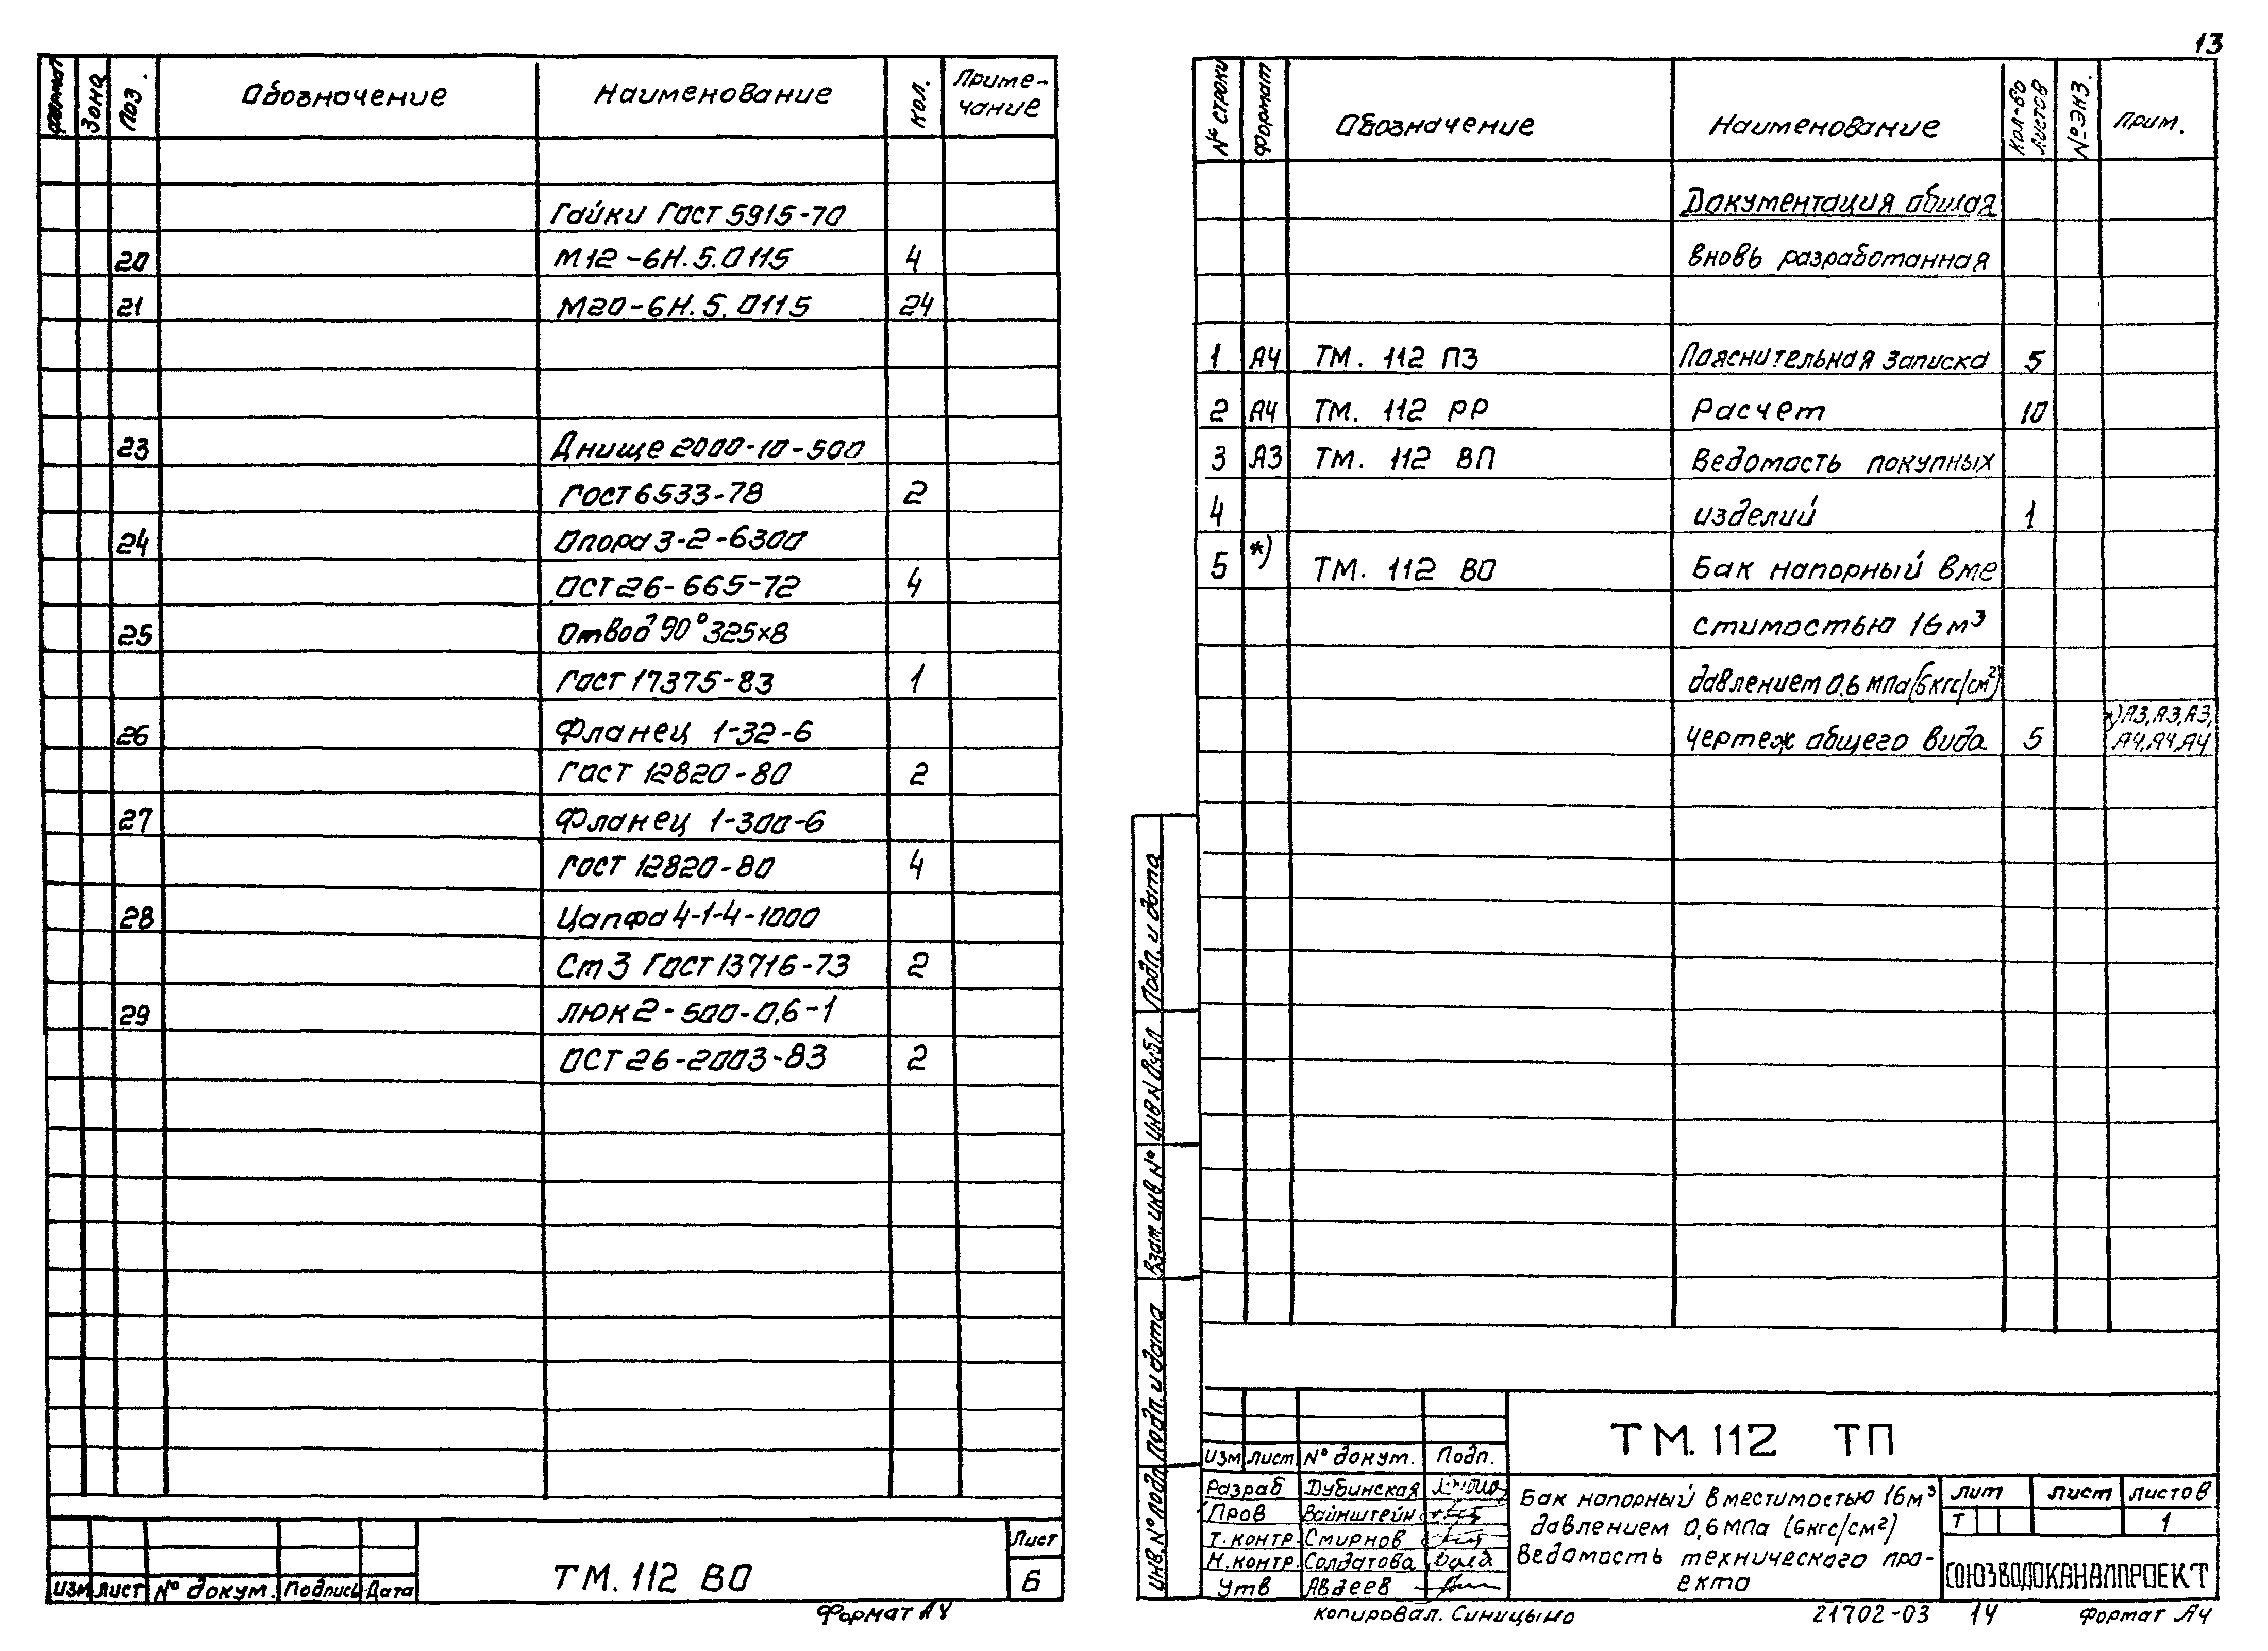 13
Формат Зона Поз. Обозначение Наименование Кол. Приме-
чание
Гайки Гост 5915-70
20 М12-6Н.5.0115 4
21 М20-6Н.5.0115 24
23 Днище 2000-10-500
Гост 6533-78 2
24 Опора 3-2-6300
ОСТ 26-665-72 4
25 Отвод 90° 325х8
Гост 17375-83 1
26 Фланец 1-32-6
Гост 12820-80 2
27 Фланец 1-300-6
Гост 12820-80 4
28 Цапфа 4-1-4-1000
Ст 3 Гост 13716-73 2
29 Люк 2-500-0,6-1
ОСТ 26-2003-83 2
Изм Лист № докум. Подпись Дата
ТМ.112 ВО
Лист
6
Формат А4
№ строки Формат Обозначение Наименование Кол-во
листов № экз. Прим.
Документация общая
вновь разработанная
1 А4 ТМ. 112 ПЗ Пояснительная записка 5
2 А4 ТМ. 112 РР Расчет 10
3 А3 ТМ. 112 ВП Ведомость покупных
4 изделий 1
5 *) ТМ. 112 ВО Бак напорный вме
стимостью 16м³
давлением 0,6 МПа (6кгс/см²)
Чертеж общего вида 5 *) А3, А3, А3,
А4, А4, А4
Подп. и дата
Инв № дубл
Взам. инв №
Подп. и дата
Инв. № подл
ТМ.112 ТП
Изм Лист № докум. Подп.
Разраб Дубинская
Пров Вайнштейн
Т.контр. Смирнов
Н.контр. Солдатова
Утв Авдеев
Бак напорный вместимостью 16м³
давлением 0,6 МПа (6кгс/см²)
Ведомость технического про-
екта
Лит Лист Листов
Т 1
СОЮЗВОДОКАНАЛПРОЕКТ
Копировал. Синицына 21702-03 14 Формат А4